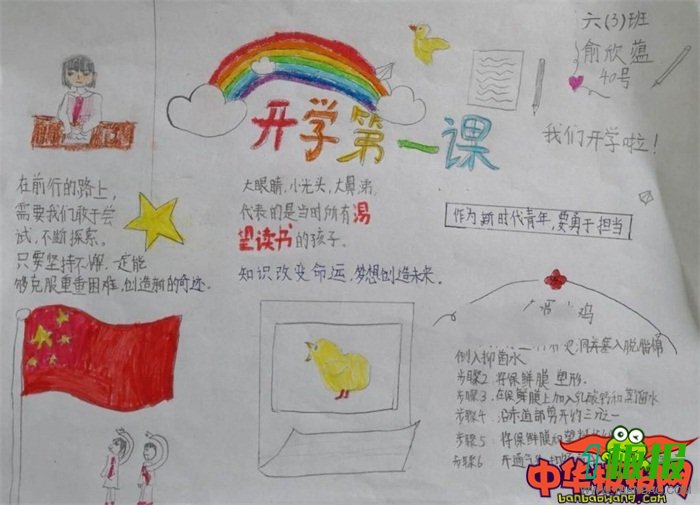 六(3)班
俞欣蕴
40号
开学第一课
我们开学啦!
在前行的路上,
需要我们敢于尝
试,不断探索。
只要坚持不懈,一定能
够克服重重困难,创造新的奇迹。
大眼睛,小光头,大鼻涕,
代表的是当时所有渴
望读书的孩子。
知识改变命运,梦想创造未来。
作为新时代青年,要勇于担当
鸡
倒入抑菌水
步骤2.将保鲜膜塑形.
步骤3.在保鲜膜上加入乳酸钙和蒸馏水
步骤4
步骤5 将保鲜膜和
步骤6
中华报猫网
baobaowang.com